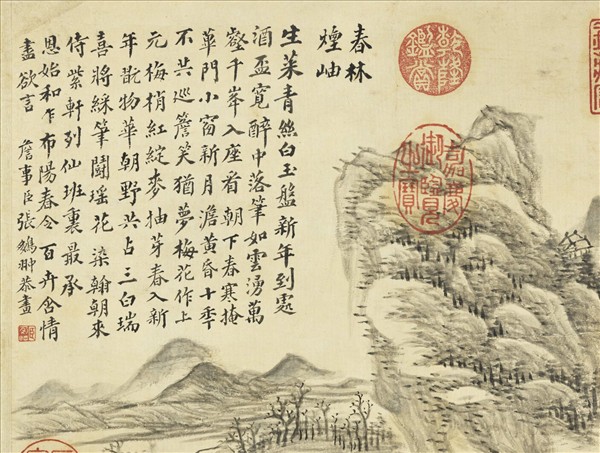 春林
煙岫
生菜青絲白玉盤新年到處
酒盃寬醉中落筆如雲湧萬
壑千峯入座看朝下春寒掩
蓽門小窗新月澹黃昏十季
不共巡簷笑猶夢梅花作上
元梅梢紅綻麥抽芽春入新
年翫物華朝野共占三白瑞
喜將綵筆鬪瑤花染翰朝來
侍紫軒列仙班裏最承
恩始和乍布陽春令百卉含情
盡欲言 詹事臣張鵬翀恭畫
乾隆
鑑賞
嘉慶
御覽
之寶